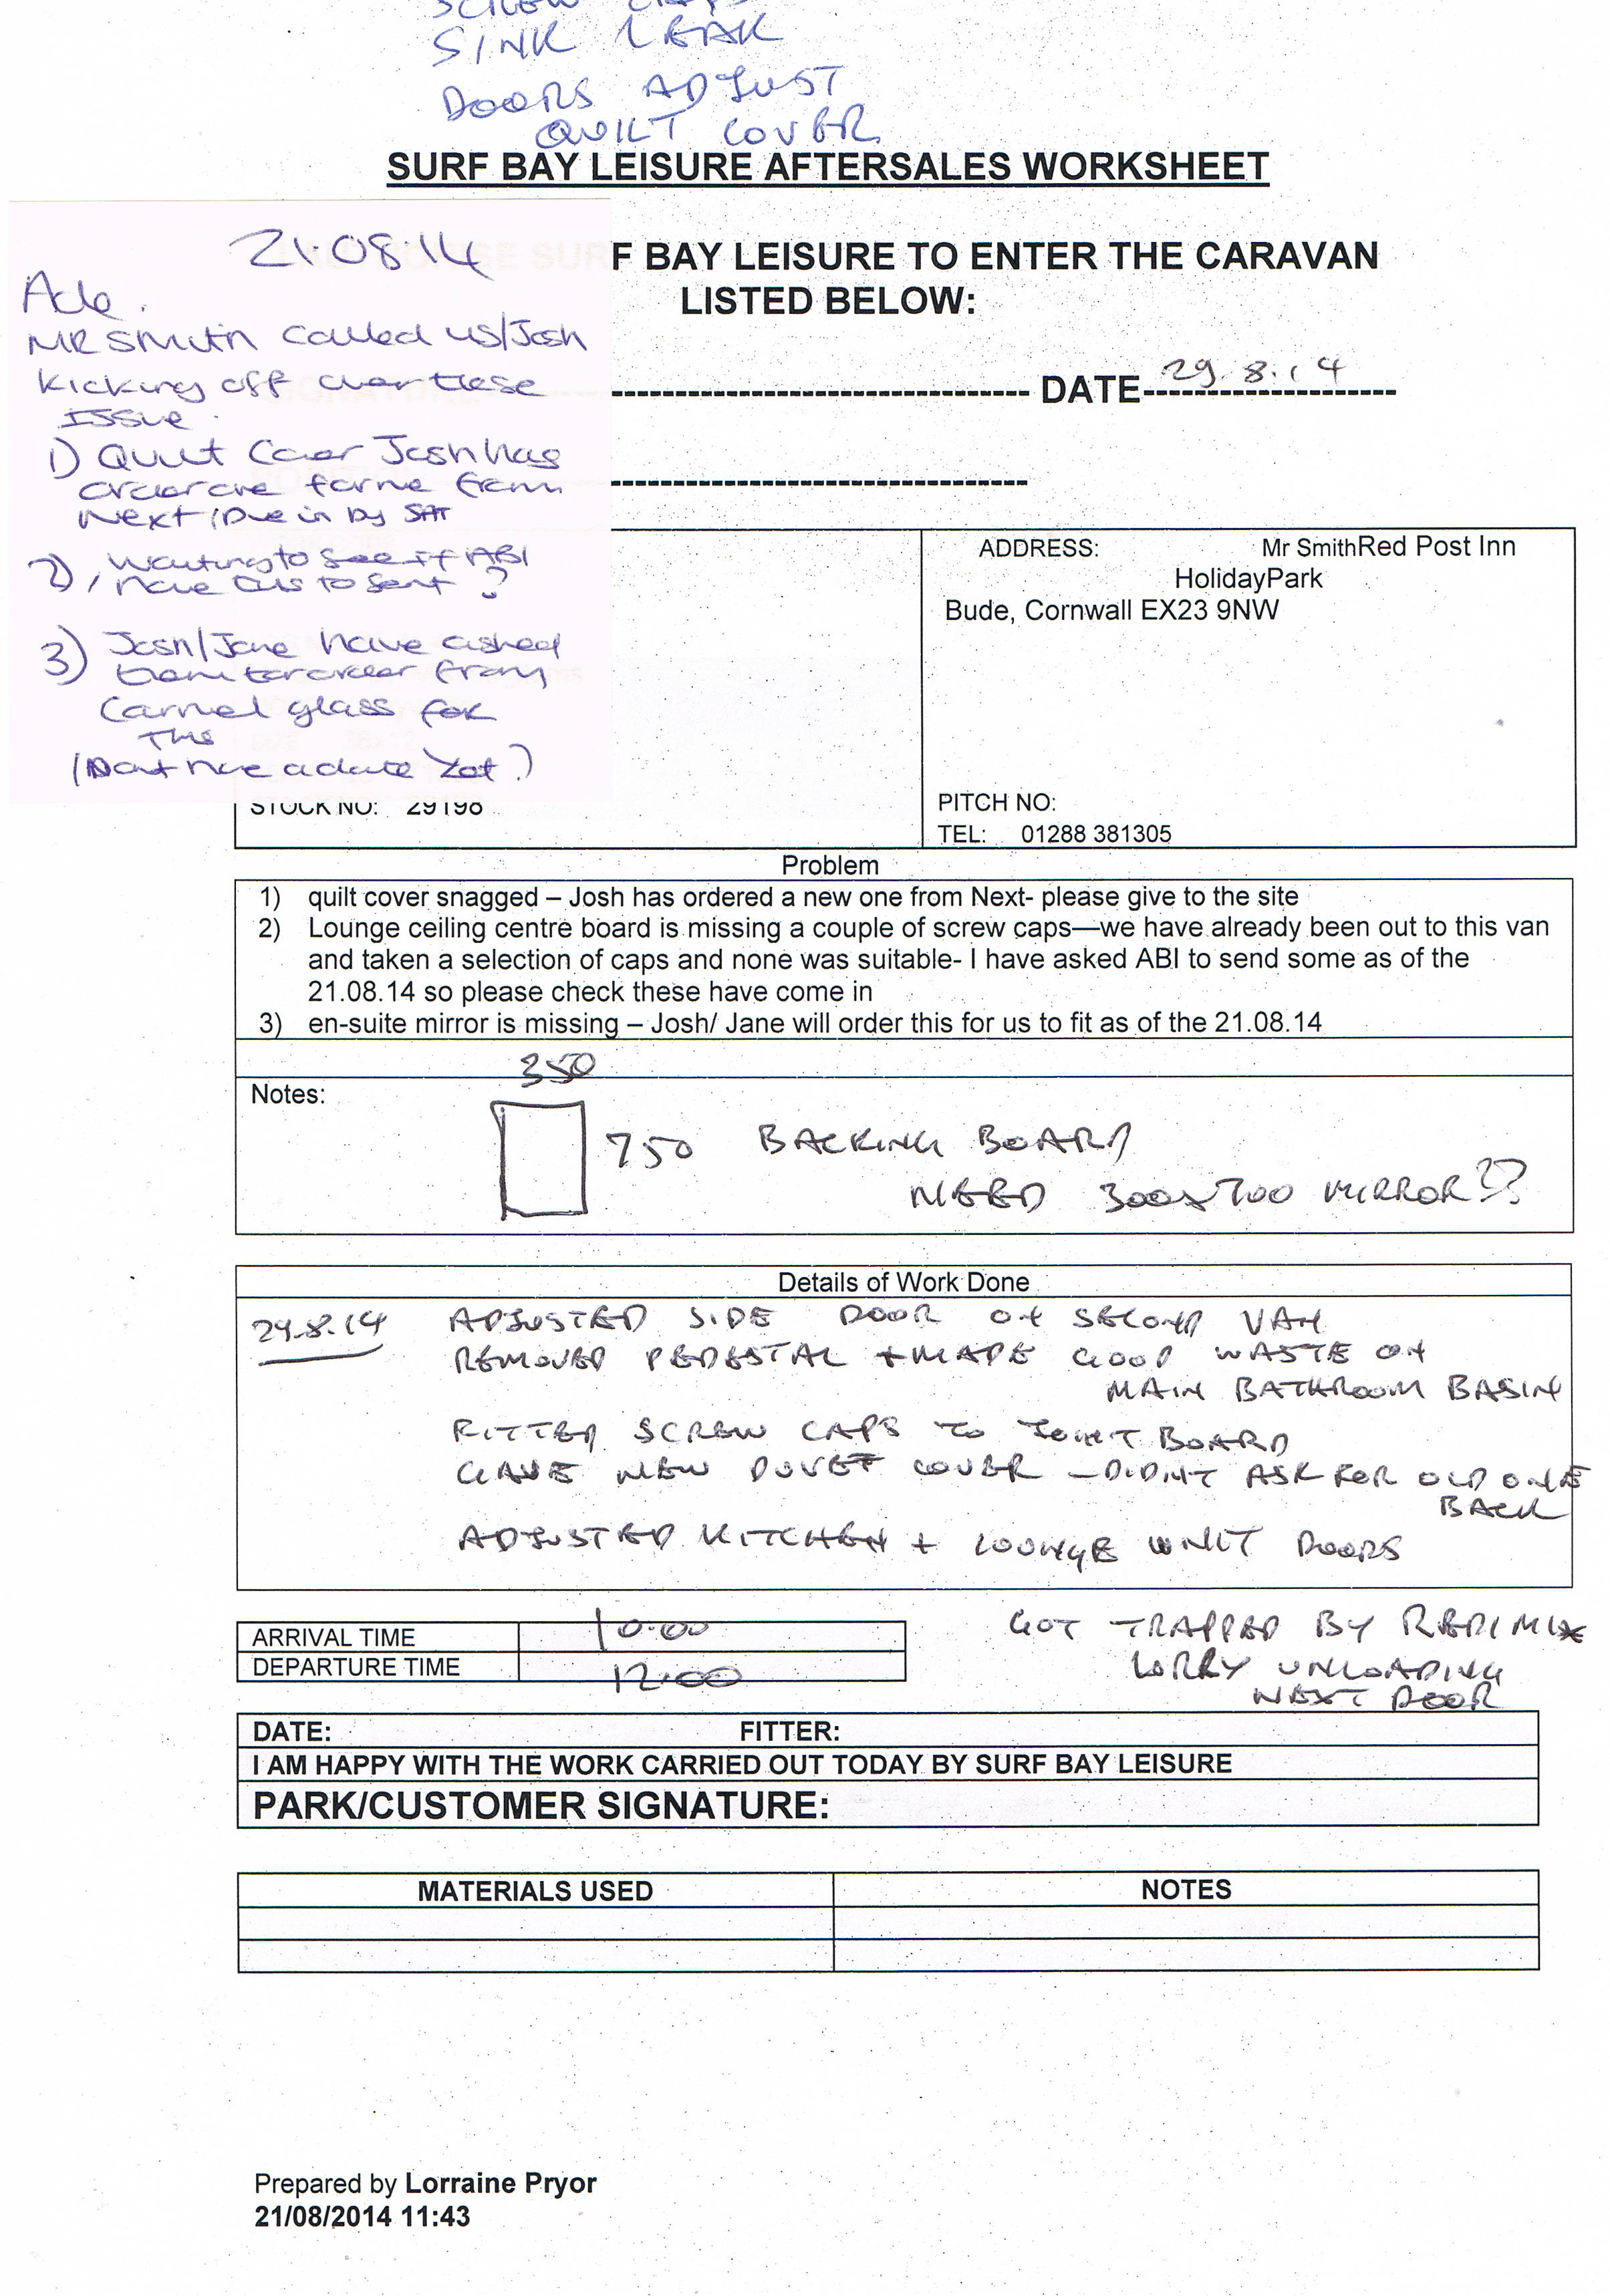 SINK LEAK
DOORS ADJUST
QUILT COVER
SURF BAY LEISURE AFTERSALES WORKSHEET
F BAY LEISURE TO ENTER THE CARAVAN
LISTED BELOW:
DATE 29.8.14
21.08.14
Ade.
MR Smith called us/Josh
kicking off over these
Issue.
1) Quilt Cover Josh has
order one for me from
Next (Due in by SAT
2) Waiting to see if ABI
have this to sent?
3) Josh/Jane have asked
them to order from
Camel glass for
This
(Dont have a date Yet?)
STOCK NO: 29198
ADDRESS: Mr SmithRed Post Inn
HolidayPark
Bude, Cornwall EX23 9NW
PITCH NO:
TEL: 01288 381305
Problem
1) quilt cover snagged – Josh has ordered a new one from Next- please give to the site
2) Lounge ceiling centre board is missing a couple of screw caps—we have already been out to this van
and taken a selection of caps and none was suitable- I have asked ABI to send some as of the
21.08.14 so please check these have come in
3) en-suite mirror is missing – Josh/ Jane will order this for us to fit as of the 21.08.14
350
Notes:
750 BACKING BOARD
NEED 300x700 MIRROR??
Details of Work Done
29.8.14 ADJUSTED SIDE DOOR ON SECOND VAN
REMOVED PEDESTAL + MADE GOOD WASTE ON
MAIN BATHROOM BASIN
FITTED SCREW CAPS TO JOINT BOARD
GAVE NEW DUVET COVER – DIDNT ASK FOR OLD ONE
BACK
ADJUSTED KITCHEN + LOUNGE UNIT DOORS
ARRIVAL TIME 10.00
DEPARTURE TIME 12.00
GOT TRAPPED BY REDIMIX
LORRY UNLOADING
NEXT DOOR
DATE: FITTER:
I AM HAPPY WITH THE WORK CARRIED OUT TODAY BY SURF BAY LEISURE
PARK/CUSTOMER SIGNATURE:
MATERIALS USED NOTES
Prepared by Lorraine Pryor
21/08/2014 11:43